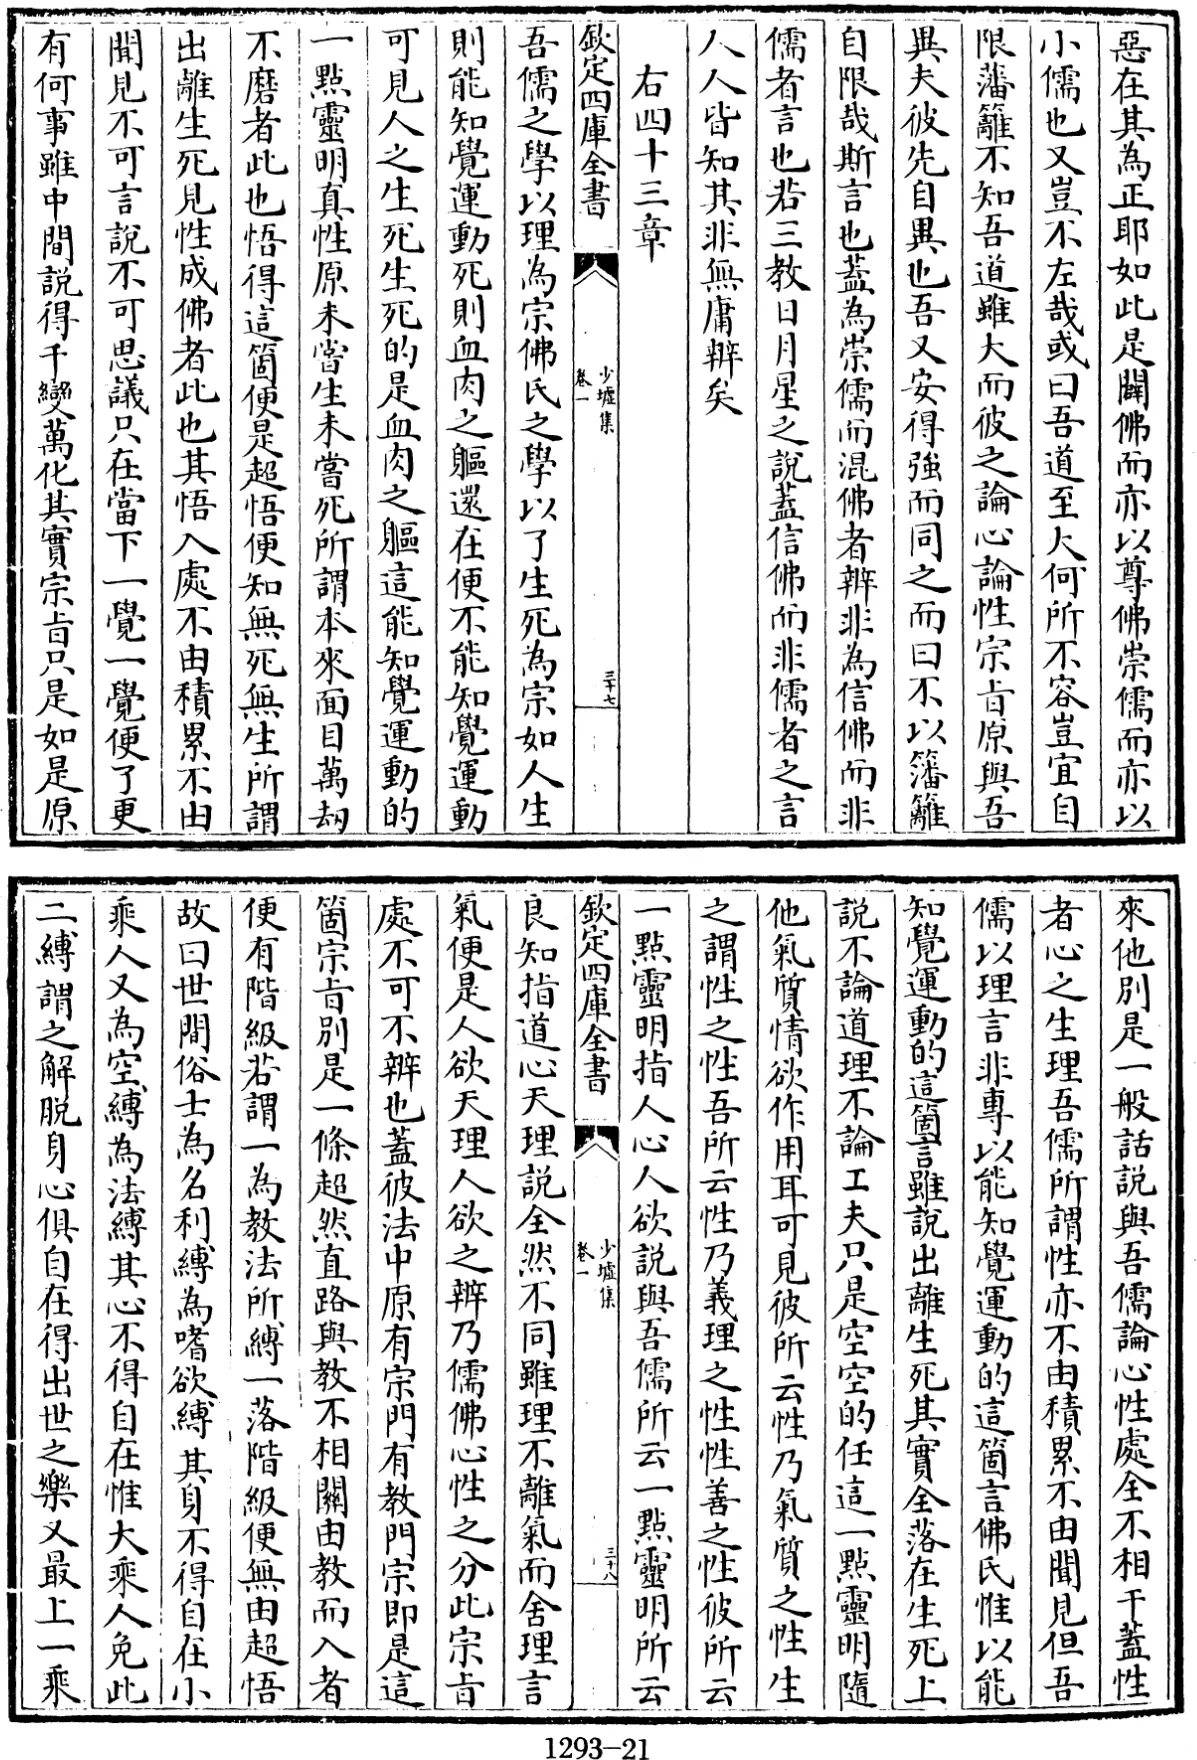 惡在其為正耶如此是闢佛而亦以尊佛崇儒而亦以
小儒也又豈不左哉或曰吾道至大何所不容豈宜自
限藩籬不知吾道雖大而彼之論心論性宗㫖原與吾
異夫彼先自異也吾又安得強而同之而曰不以籓籬
自限哉斯言也葢為崇儒而混佛者辨非為信佛而非
儒者言也若三教日月星之說葢信佛而非儒者之言
人人皆知其非無庸辨矣
右四十三章
欽定四庫全書
少墟集
卷一
三十七
吾儒之學以理為宗佛氏之學以了生死為宗如人生
則能知覺運動死則血肉之軀還在便不能知覺運動
可見人之生死生死的是血肉之軀這能知覺運動的
一點靈明真性原未嘗生未嘗死所謂本來面目萬劫
不磨者此也悟得這箇便是超悟便知無死無生所謂
出離生死見性成佛者此也其悟入處不由積累不由
聞見不可言說不可思議只在當下一覺一覺便了更
有何事雖中間說得千變萬化其實宗㫖只是如是原
來他別是一般話說與吾儒論心性處全不相干葢性
者心之生理吾儒所謂性亦不由積累不由聞見但吾
儒以理言非專以能知覺運動的這箇言佛氏惟以能
知覺運動的這箇言雖說出離生死其實全落在生死上
說不論道理不論工夫只是空空的任這一點靈明隨
他氣質情欲作用耳可見彼所云性乃氣質之性生
之謂性之性吾所云性乃義理之性性善之性彼所云
一點靈明指人心人欲說與吾儒所云一點靈明所云
欽定四庫全書
少墟集
卷一
三十八
良知指道心天理說全然不同雖理不離氣而舍理言
氣便是人欲天理人欲之辨乃儒佛心性之分此宗㫖
處不可不辨也葢彼法中原有宗門有教門宗即是這
箇宗㫖別是一條超然直路與教不相關由教而入者
便有階級若謂一為教法所縛一落階級便無由超悟
故曰世間俗士為名利縛為嗜欲縛其身不得自在小
乘人又為空縛為法縛其心不得自在惟大乘人免此
二縛謂之解脫身心俱自在得出世之樂又最上一乘
1293-21